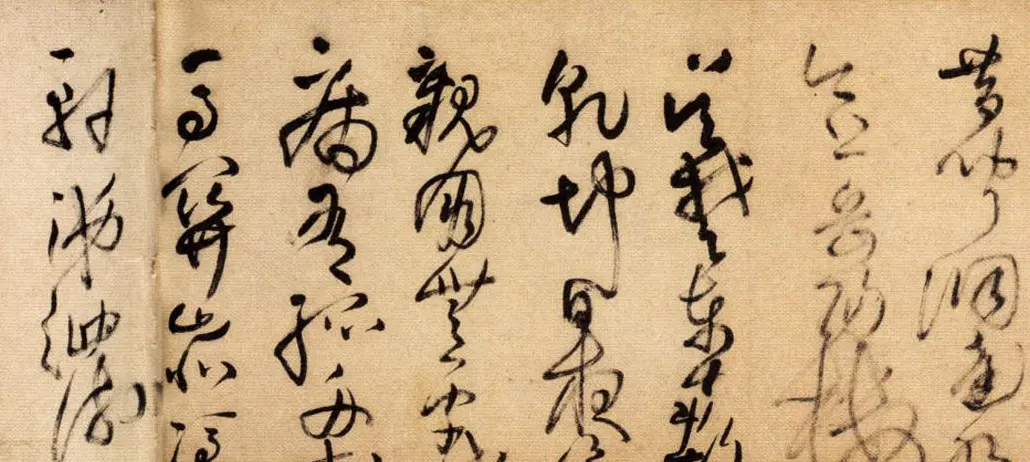 昔聞洞庭水
今上岳陽樓
吴楚東南
乾坤日夜
親朋無字
病有孤舟
馬關山北
軒涕泗流